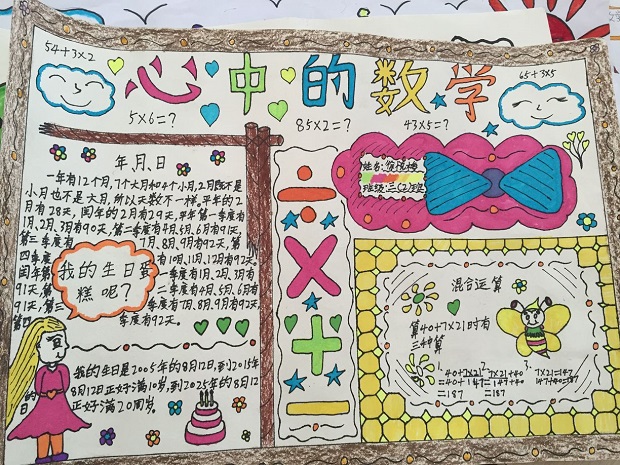 54+3×2
心中的数学
65+3×5
5×6=?
85×2=?
43×5=?
年、月、日
一年有12个月,7个大月和4个小月,2月既不是
小月也不是大月,所以天数不一样,平年的2
月有28天,闰年的2月有29天,平年第一季度有
1月、2月、3月90天,第二季度有4月、5月、6月有91天,
第三季度有 7月、8月、9月有92天,第
四季度 有10月、11月、12月有92天,
闰年第 一季度有1月、2月、3月有
91天,第 二季度有4月、5月、6月有
91天,第三 季度有7月、8月、9月有92天,
第四 季度有92天。
我的生日蛋
糕呢?
我的生日是2005年的8月12日,到2015年
8月12日正好满10岁,到2025年的8月12
日正好满20周岁。
÷
×
+
−
姓名:
班级:三(2)班
混合运算
算40+7×21时有
三种算
1. 40+7×21
=40+147
=187
2. 7×21+40
=147+40
=187
3. 7×21=147
147+40=187